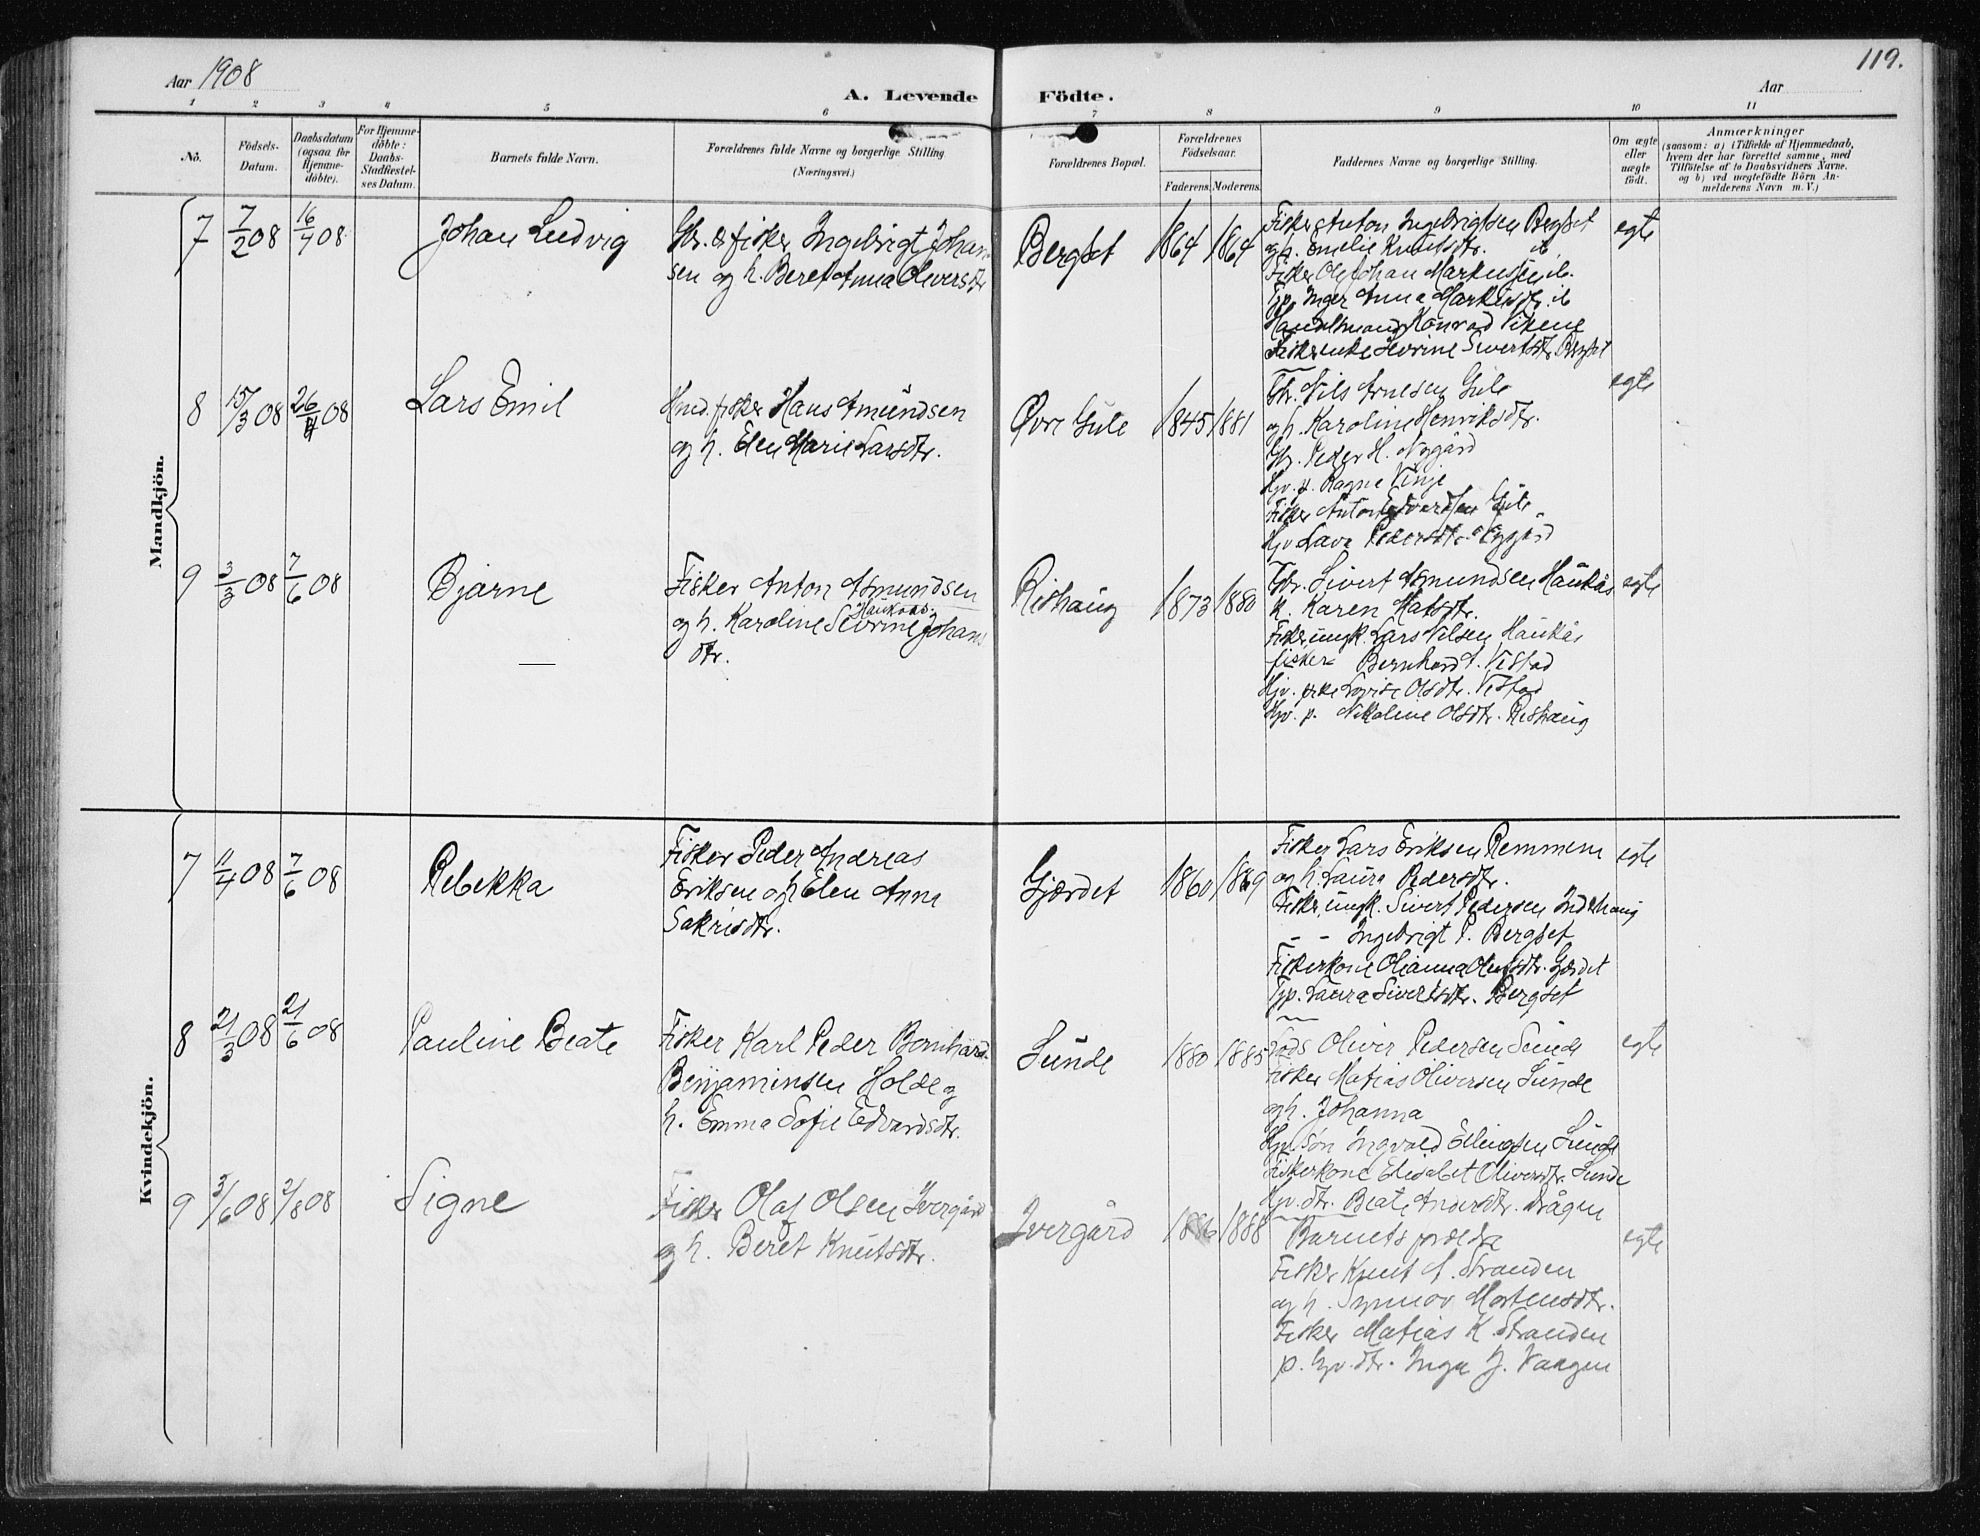 119.
Aar 1908
A. Levende Födte.
Aar
1 2 3 4 5 6 7 8 9 10 11
No.
Födsels-Datum.
Daabsdatum (ogsaa for Hjemme-döbte).
For Hjemme-döbte: Daabs-Stadfæstel-ses Datum.
Barnets fulde Navn.
Forældrenes fulde Navne og borgerlige Stilling
(Næringsvei.)
Forældrenes Bopæl.
Forældrenes Födselsaar.
Faderens. Moderens.
Faddernes Navne og borgerlige Stilling.
Om ægte eller uægte födt.
Anmærkninger
(saasom: a) i Tilfælde af Hjemmedaab,
hvem der har forrettet samme, med
Tilföielse af to Daabsvidners Navne.
og b) ved uægtefödte Börn An-
melderens Navn m. V.)
Mandkjön.
7 7/2 08 16/4 08 Johan Ludvig
Gbr. & fisker Ingebrigt Johan-
sen og h. Beret Anna Oliversdtr
Bergset 1864 1864
Fisker Anton Ingebrigtsen Bergset
og h. Emelie Knutsdtr. ib
Fisker Ole Johan Markussen ib.
Tjp. Inger Anna Markusdtr. ib
Handelsmand Konrad Vikene
Fiskerenke Sevrine Sivertsdtr. Bergset
egte
8 15/3 08 26/4 08 Lars Emil
Hmd. fisker Hans Amundsen
og h. Elen Marie Larsdtr.
Øvre Gule 1845 1881
Gbr. Nils Arnesen Gule
og h. Karoline Henriksdtr.
Gbr. Peder H. Nygård
Hjv. p. Ragne Vinje
Fisker Anton Edvardsen Gule
Hjv Lava Pedersdtr.
egte
9 3/3 08 7/6 08 Bjarne
Fisker Anton Asmundsen
Haukaas
og h. Karoline Sevrine Johans
dtr.
Rishaug 1873 1880
Gbr. Sivert Asmundsen Haukås
k. Karen Matsdtr.
Fisker, ungk. Lars Nilsen Haukås
fisker Bernhard A. Vestad
Hjv. pike Lovise Olsdtr. Vestad
Hjv. p. Nikoline Olsdtr. Rishaug
egte
Kvindekjön.
7 11/4 08 7/6 08 Rebekka
Fisker Peder Andreas
Eriksen og h Elen Anna
Sakrisdtr.
Gjærdet 1860 1869
Fisker Lars Eriksen Remmem
og h. Laura Pedersdtr.
Fisker, ungk. Sivert Pedersen Indrehaug
- - Ingebrigt P. Bergset
Fiskerkone Olianna Olufsdtr. Gjærdet
Tjp. Laura Sivertsdtr. Bergset
egte
8 21/3 08 21/6 08 Pauline Beate
Fisker Karl Peder Bernhard
Benjaminsen Holde og
h. Emma Sofie Edvardsdtr.
Sunde 1880 1885
Føds Oliver Pedersen Sunde
Fisker Matias Oliversen Sunde
og h. Johanna
Hjv. søn Ingvald Ellingsen Sunde
Fiskerkone Elisabet Oliversdtr. Sunde
Hjv. dtr. Beate Andersdtr. Drågen
egte
9 3/6 08 2/8 08 Signe
Fisker Olaf Olsen Ivergård
og h. Beret Knutsdtr.
Ivergård 1886 1888
Barnets foreldre
Fisker Knut A. Stranden
og h. Synnøv Mortensdtr.
Fisker Matias K. Stranden
p. hjv. dtr. Inga J. Vaagen
egte